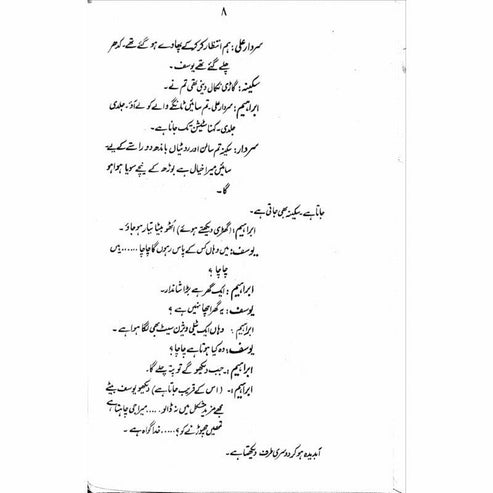 ۸
سردار علی: ہم انتظار کر کر کے پھاوے ہو گئے تھے۔ کدھر
چلے گئے تھے یوسف۔
سکینہ: گاڑی نکال دینی تھی تم نے۔
ابراہیم: سردار علی۔ تم سائیں ٹانگے والے کو لے آؤ۔ جلدی
جلدی۔ کہنا سٹیشن تک جانا ہے۔
سردار: سکینہ تم سالن اور روٹیاں باندھ دو راستے کے لیے۔
سائیں میرا خیال ہے بوڑھ کے نیچے سویا ہوا ہو
گا۔
جاتا ہے۔ سکینہ بھی جاتی ہے۔
ابراہیم: (گھڑی دیکھتے ہوئے) اُٹھو بیٹا تیار ہو جاؤ۔
یوسف: میں وہاں کس کے پاس رہوں گا چاچا ...... ہیں
چاچا ؟
ابراہیم: ایک گھر ہے بڑا شاندار۔
یوسف: یہ گھر اچھا نہیں ہے ؟
ابراہیم: وہاں ایک ٹیلی ویژن سیٹ بھی لگا ہوا ہے۔
یوسف: وہ کیا ہوتا ہے چاچا؟
ابراہیم :۔ جب دیکھو گے تو پتہ چلے گا۔
ابراہیم :۔ (اس کے قریب جاتا ہے) دیکھو یوسف بیٹے
مجھے مزید مشکل میں نہ ڈالو ..... میرا جی چاہتا ہے
تمھیں چھوڑنے کو ؟..... خدا گواہ ہے۔
آبدیدہ ہو کر دوسری طرف دیکھتا ہے۔